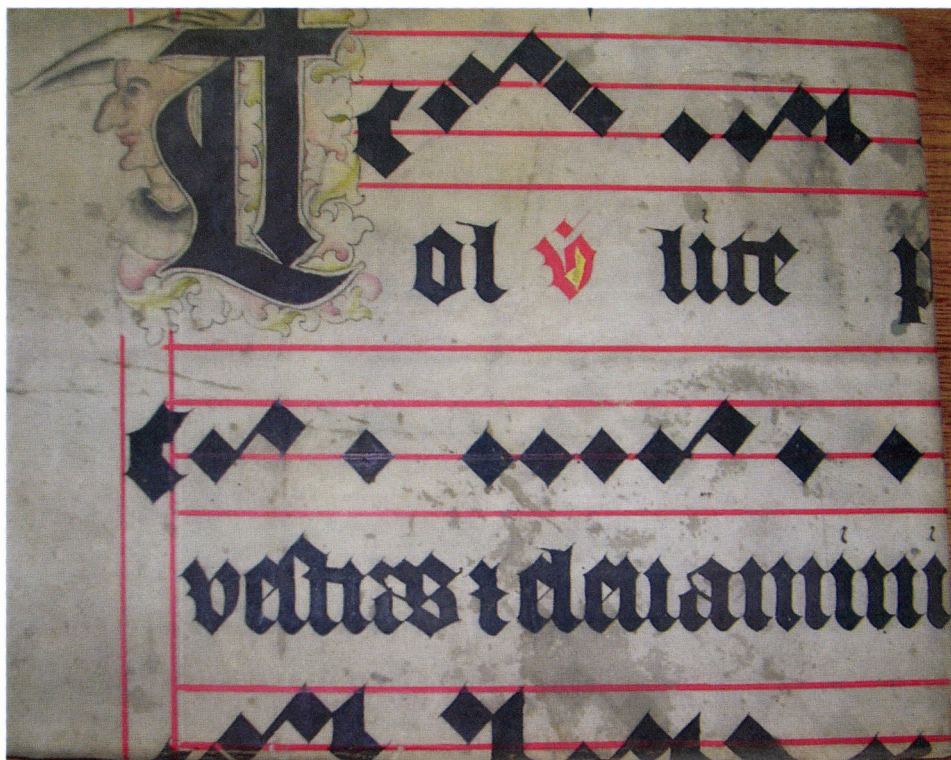 Tol v̇ lite p
vestras ⁊ eleuamini